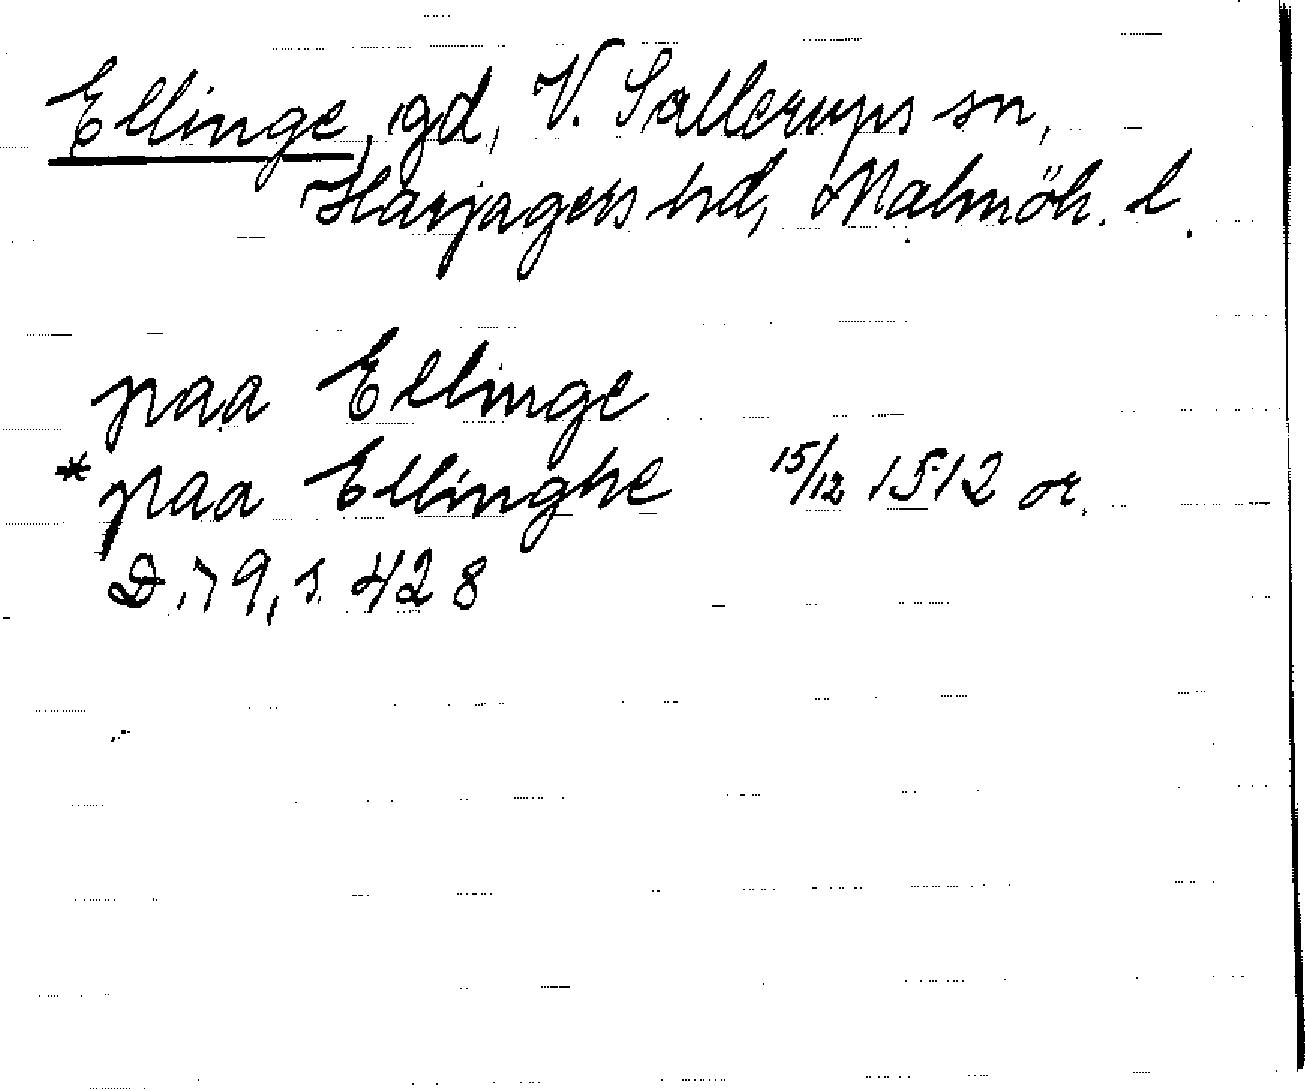 Ellinge, gd, V. Sallerups sn,
Harjagers hd, Malmöh. l.
paa Ellinge
*paa Ellinghe 15/12 1512 or.
D. 79, s. 428